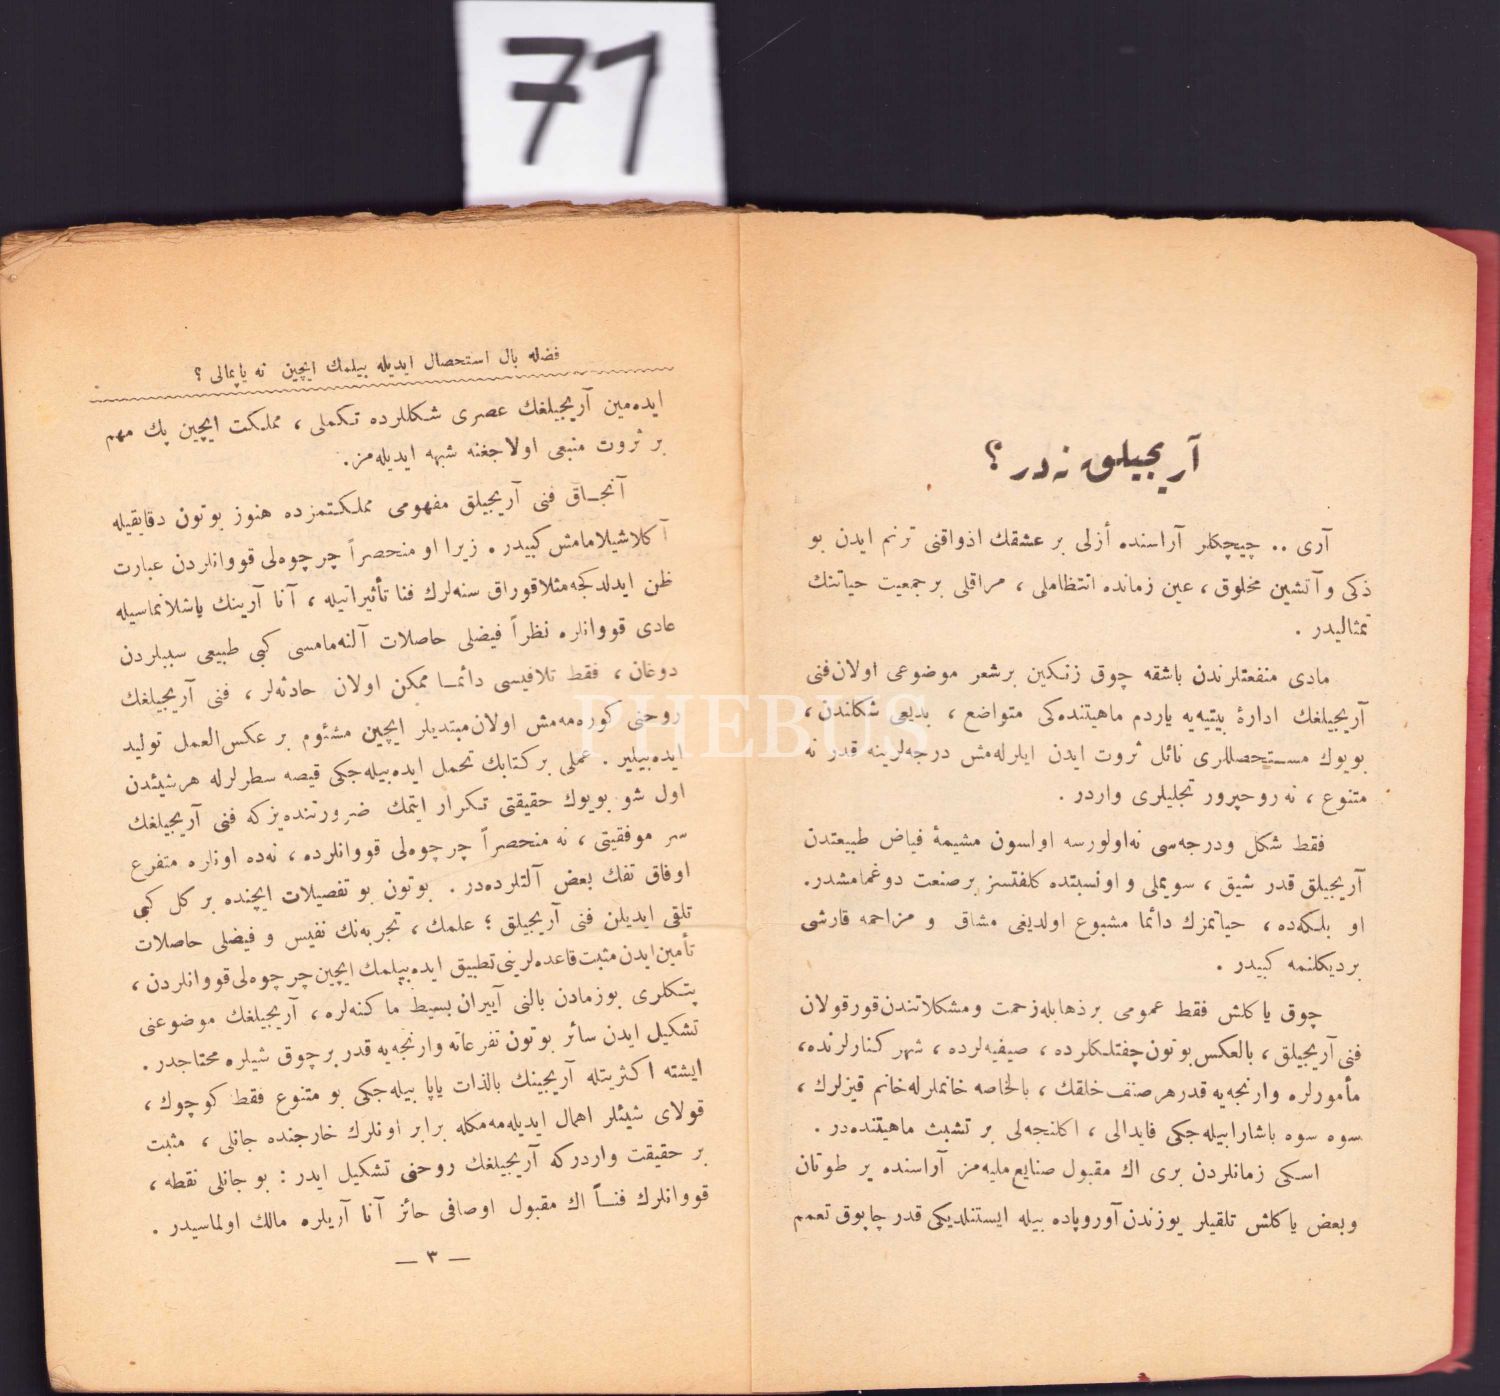 71
آریجیلق نه‌در ؟
آری .. چیچکلر آراسنده أزلی بر عشقك اذواقنی ترنم ایدن بو
ذکی و آتشین مخلوق ، عین زمانده انتظاملی ، مراقلی بر جمعیت حیاتنك
تمثالیدر .
مادی منفعتلرندن باشقه چوق زنکین بر شعر موضوعی اولان فنی
آریجیلغك ادارۀ بیتیه‌یه یاردم ماهیتنده‌کی متواضع ، بدیعی شکلندن ،
بویوك مستحصللری نائل ثروت ایدن ایلرله‌مش درجه‌لرینه قدر نه
متنوع ، نه روحپرور تجلیلری واردر .
فقط شکل و درجه‌سی نه اولورسه اولسون مشیمۀ فیاض طبیعتدن
آریجیلق قدر شیق ، سویملی و اونسبتده کلفتسز بر صنعت دوغمامشدر.
او بلکه‌ده ، حیاتمزك دائما مشبوع اولدیغی مشاق و مزاحمه قارشی
بردیکلنمه کبیدر .
چوق یاکلش فقط عمومی بر ذهابله زحمت و مشکلاتندن قورقولان
فنی آریجیلق ، بالعکس بوتون چفتلکلرده ، صیفیه‌لرده ، شهر کنارلرنده،
مأمورلره وارنجه‌یه قدر هر صنف خلقك ، بالخاصه خانملرله خانم قیزلرك ،
سوه سوه باشارابیله‌جکی فایدالی ، اکلنجه‌لی بر تشبث ماهیتنده‌در .
اسکی زمانلردن بری اك مقبول صنایع ملیه‌مز آراسنده یر طوتان
و بعض یاکلش تلقیلر یوزندن آوروپاده بیله ایستنلدیکی قدر چابوق تعمم
فضله بال استحصال ایدیله بیلمك ایچین نه یاپمالی ؟
ایده‌مین آریجیلغك عصری شکللرده تکملی ، مملکت ایچین پك مهم
بر ثروت منبعی اولاجغنه شبهه ایدیله‌مز.
آنجاق فنی آریجیلق مفهومی مملکتمزده هنوز بوتون دقایقیله
آکلاشیلامامش کبیدر . زیرا او منحصراً چرچوه‌لی قووانلردن عبارت
ظن ایدلدکجه مثلا قوراق سنه‌لرك فنا تأثیراتیله ، آنا آرینك یاشلانماسیله
عادی قووانلره نظراً فیضلی حاصلات آلنه‌مامسی کبی طبیعی سببلردن
دوغان ، فقط تلافیسی دائما ممکن اولان حادثه‌لر ، فنی آریجیلغك
روحنی کوره‌مه‌مش اولان مبتدیلر ایچین مشئوم بر عکس العمل تولید
ایده‌بیلیر . عملی بر کتابك تحمل ایده‌بیله‌جکی قیصه سطرلرله هر شیئدن
اول شو بویوك حقیقتی تکرار ایتمك ضرورتنده‌یز که فنی آریجیلغك
سر موفقیتی ، نه منحصراً چرچوه‌لی قووانلرده ، نه‌ده اونلره متفرع
اوفاق تفك بعض آلتلرده‌در . بوتون بو تفصیلات ایچنده بر کل کبی
تلقی ایدیلن فنی آریجیلق ؛ علمك ، تجربه‌نك نفیس و فیضلی حاصلات
تأمین ایدن مثبت قاعده‌لرینی تطبیق ایده‌بیلمك ایچین چرچوه‌لی قووانلردن ،
پتکلری بوزمادن بالنی آییران بسیط ماکنه‌لره ، آریجیلغك موضوعنی
تشکیل ایدن سائر بوتون تفرعاته وارنجه‌یه قدر بر چوق شیلره محتاجدر .
ایشته اکثریتله آریجینك بالذات یاپا بیله‌جکی بو متنوع فقط کوچوك ،
قولای شیئلر اهمال ایدیله‌مه‌مکله برابر اونلرك خارجنده جانلی ، مثبت
بر حقیقت واردرکه آریجیلغك روحنی تشکیل ایدر : بو جانلی نقطه ،
قووانلرك فنـاً اك مقبول اوصافی حائز آنا آریلره مالك اولماسیدر .
— ٣ —
PHEBUS